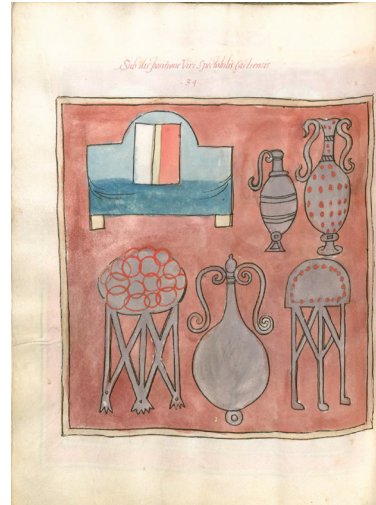 Sub dispositione Viri Spectabilis Castrensis
· 34 ·